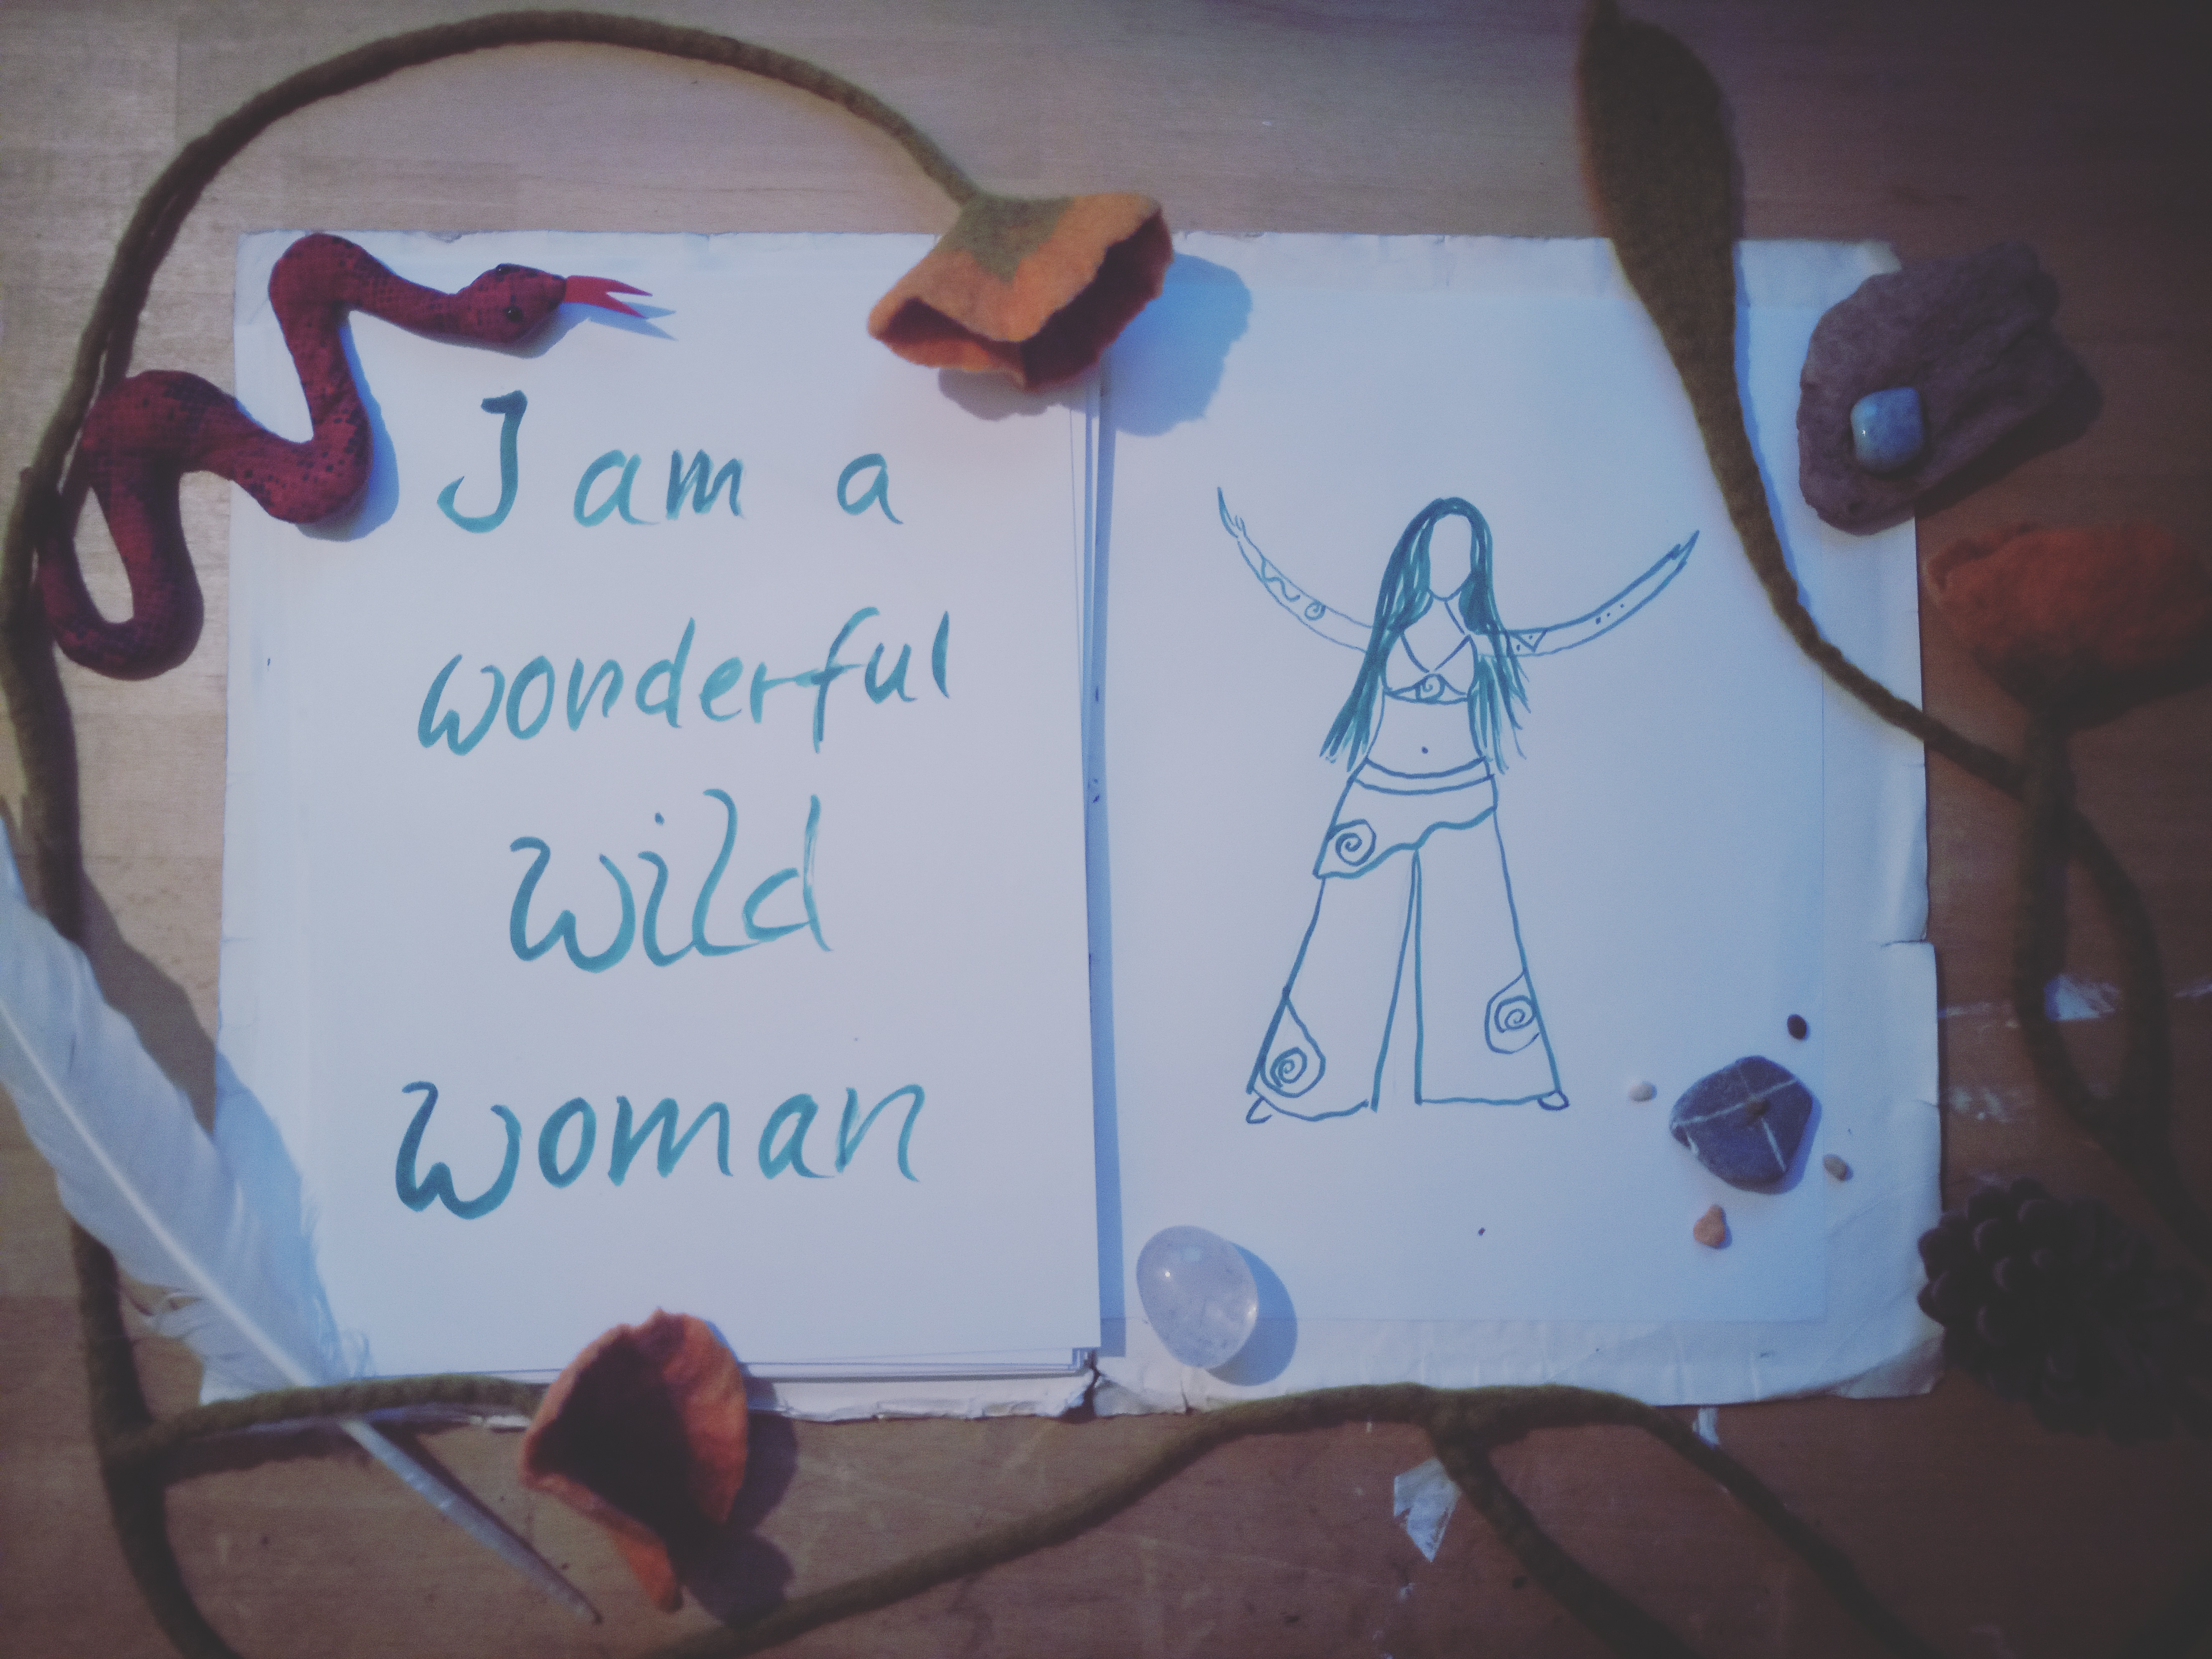 I am a
wonderful
wild
woman